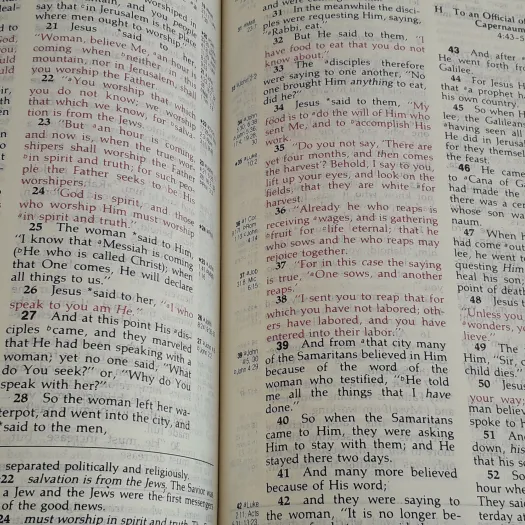 say that in Jerusalem is the place
where men ought to worship."
21 Jesus *said to her,
"Woman, believe Me, an hour is
coming when neither in this
mountain, nor in Jerusalem, shall
you worship the Father.
22 "You worship that which
you do not know; we worship
that which we know, for salva-
tion is from the Jews.
23 "But an hour is coming,
and now is, when the true wor-
shipers shall worship the Father
in spirit and truth; for such peo-
ple the Father seeks to be His
worshipers.
24 "God is spirit, and those
who worship Him must worship
in spirit and truth."
25 The woman *said to Him,
"I know that Messiah is coming
(He who is called Christ); when
that One comes, He will declare
all things to us."
26 Jesus *said to her, "I who
speak to you am He."
27 And at this point His dis-
ciples came, and they marveled
that He had been speaking with a
woman; yet no one said, "What
do You seek?" or, "Why do You
speak with her?"
28 So the woman left her wa-
terpot, and went into the city, and
*said to the men,
separated politically and religiously.
22 salvation is from the Jews. The Savior was
a Jew and the Jews were the first messengers
of the good news.
24 must worship in spirit and truth.
31 In the meanwhile the disci-
ples were requesting Him, saying,
"Rabbi, eat."
32 But He said to them, "I
have food to eat that you do not
know about."
33 The disciples therefore
were saying to one another, "No
one brought Him anything to eat,
did he?"
34 Jesus *said to them, "My
food is to do the will of Him who
sent Me, and to accomplish His
work.
35 "Do you not say, 'There are
yet four months, and then comes
the harvest'? Behold, I say to you,
lift up your eyes, and look on the
fields, that they are white for
harvest.
36 "Already he who reaps is
receiving wages, and is gathering
fruit for life eternal; that he
who sows and he who reaps may
rejoice together.
37 "For in this case the saying
is true, 'One sows, and another
reaps.'
38 "I sent you to reap that for
which you have not labored; oth-
ers have labored, and you have
entered into their labor."
39 And from that city many
of the Samaritans believed in Him
because of the word of the
woman who testified, "He told
me all the things that I have
done."
40 So when the Samaritans
came to Him, they were asking
Him to stay with them; and He
stayed there two days.
41 And many more believed
because of His word;
42 and they were saying to
the woman, "It is no longer be-
H. To an Official of
Capernaum
43 And after
He went forth from
Galilee.
44 For Jesus H
that a prophet h
his own country.
45 So when H
lee, the Galileans
having seen all
He did in Jerusale
for they themsel
the feast.
46 He came
to Cana of G
had made the
there was a cer
whose son wa
naum.
47 When h
had come out
lee, he went t
questing Him
heal his son;
point of death
48 Jesus
"Unless you
wonders, y
lieve."
49 The
Him, "Sir, c
child dies."
50 Jesus
your way;
man believ
spoke to h
51 An
down, his
that his so
52 So
hour whe
They said
terday a